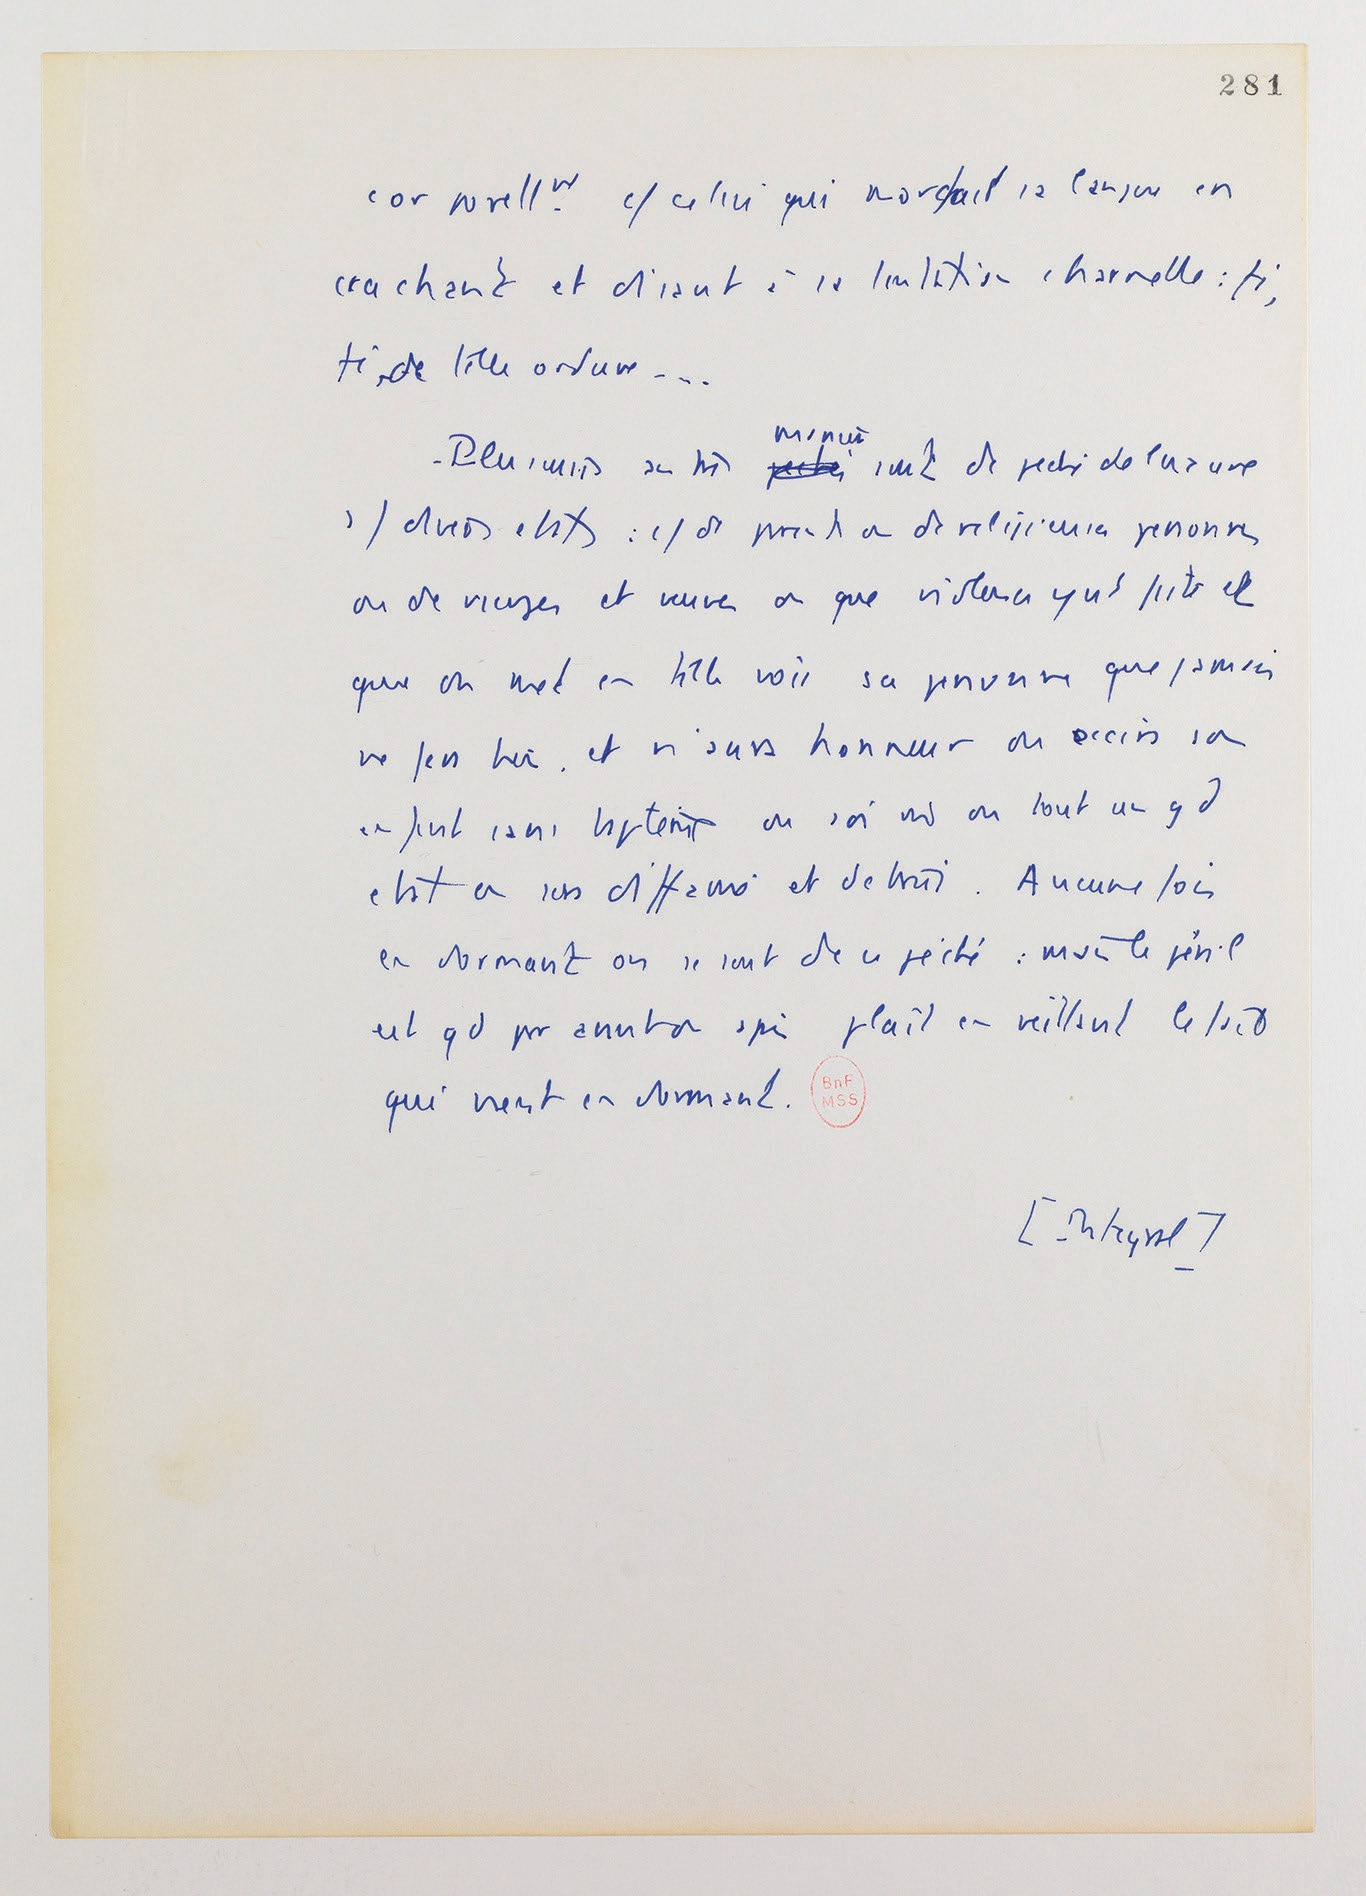 281
corporellnt. c/ celui qui mordait sa langue en
crachant et disant à sa tentation charnelle : fi,
fi, de telle ordure ...
Plusieurs autres manières sont de péché de luxure
s/ divers estats : c/ de prendre de religieuses personnes
ou de vierges et veuves ou que violence y ait faite et
que on met en telle voie sa personne que jamais
ne sera bien. et n'aura honneur ou occira son
enfant sans bapteme ou soi ou tout un qd
estat en sera diffamé et detruit. Aucune fois
en dormant on se sent de ce péché : mais le péril
est qd par après plait en veillant le fait
qui vient en dormant.
BnF
MSS